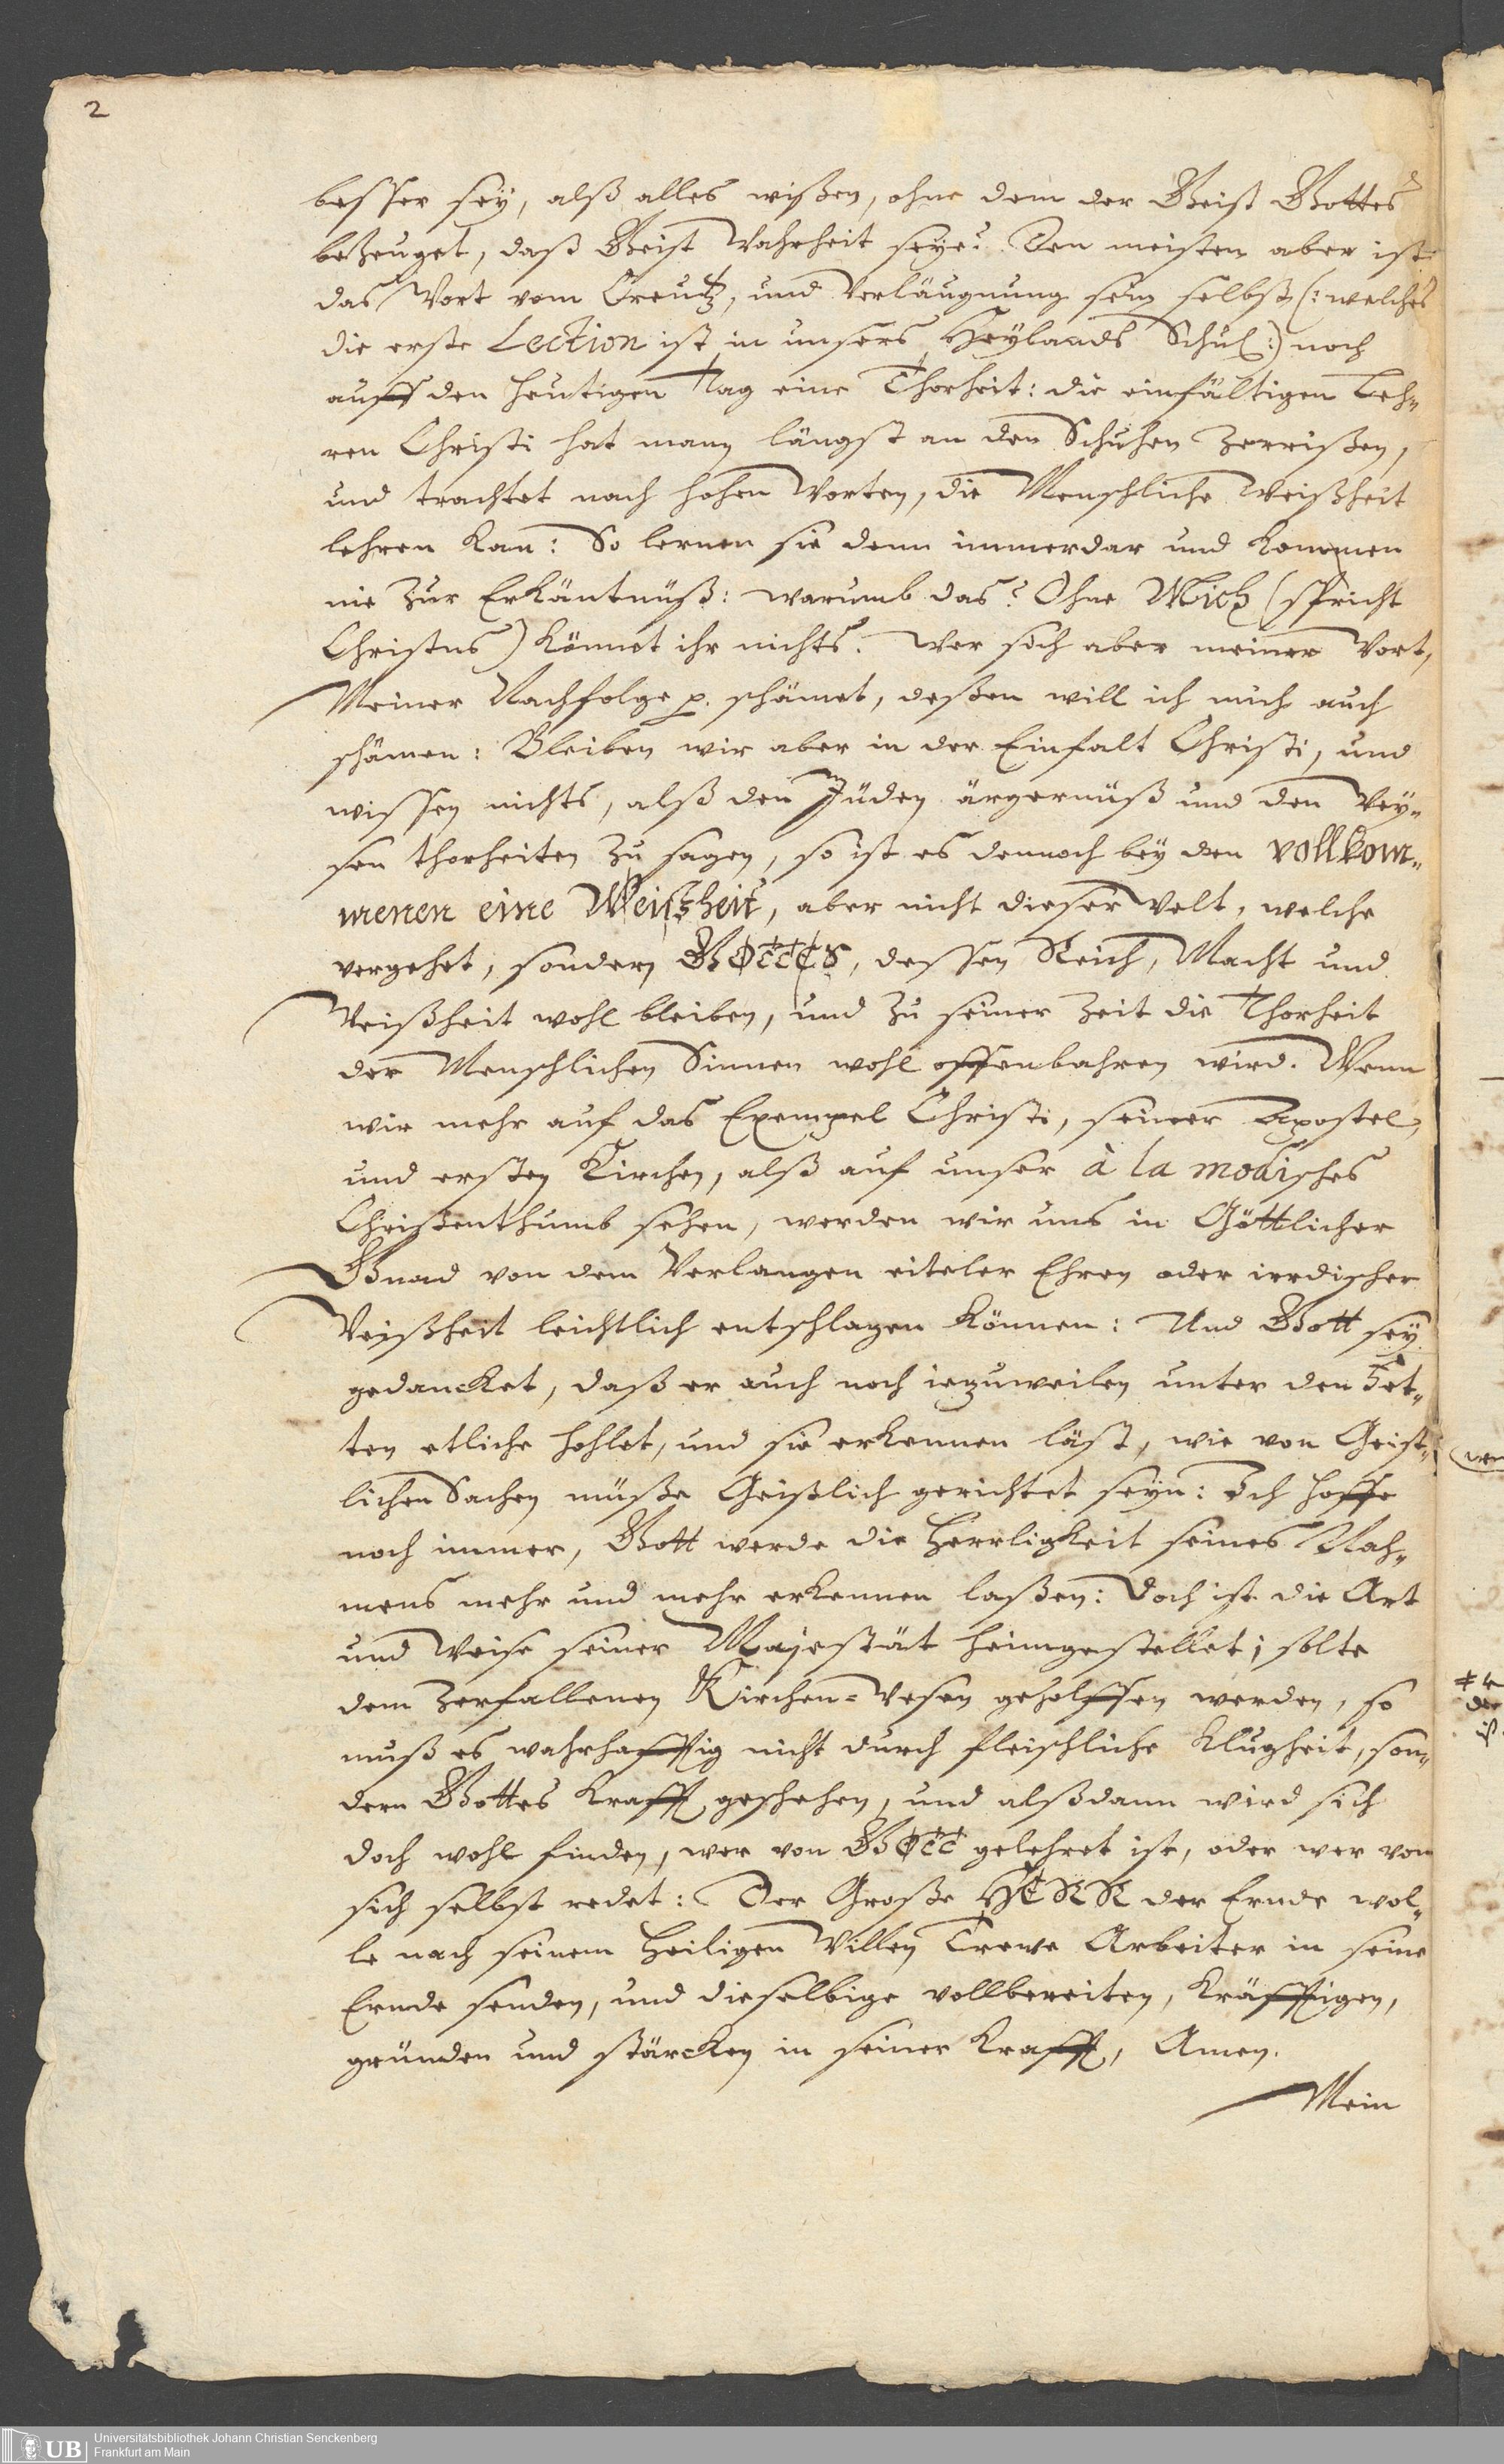 2
besser sey, alß alles wißen, ohne dem der Geist Gottes
bezeuget, daß Geist Wahrheit seye? Den meisten aber ist
das Wort vom Creutz, und Verläugnung sein selbst (: welches
die erste Lection ist in unsers Heylands Schul :) noch
auff den heutigen Tag eine Thorheit: die einfältigen Leh„
ren Christi hat man längst an den Schuhen zerrißen,
und trachtet nach hohen Worten, die Menschliche Weißheit
lehren kan: So lernen sie denn immerdar und kommen
nie zur Erkäntnüß: warumb das? Ohne Mich (spricht
Christus) könnet ihr nichts. Wer sich aber meiner Wort,
Meiner Nachfolge p. schämet, deßen will ich mich auch
schämen: Bleiben wir aber in der Einfalt Christi, und
wissen nichts, alß den Jüden ärgernüß und den Wey„
sen thorheiten zu sagen, so ist es dennoch bey den vollkom„
menen eine Weißheit, aber nicht dieser Welt, welche
vergehet, sondern GOTTES, dessen Reich, Macht und
Weißheit wohl bleiben, und zu seiner Zeit die Thorheit
der Menschlichen Sinnen wohl offenbahren wird. Wenn
wir mehr auf das Exempel Christi, seiner Apostel,
und ersten Kirchen, alß auf unser à la modisches
Christenthumb sehen, werden wir uns in Göttlicher
Gnad von dem Verlangen eiteler Ehren oder irrdischer
Weißheit leichtlich entschlagen können: Und Gott sey
gedancket, daß er auch noch iezuweilen unter den Fet„
ten etliche hohlet, und sie erkennen läst, wie von Geist„
lichen Sachen müße Geistlich gerichtet seyn: Ich hoffe
noch immer, Gott werde die Herrligkeit seines Nah„
mens mehr und mehr erkennen laßen: Doch ist die Art
und Weise seiner Majestät heimgestellet; solte
dem zerfallenen Kirchen-Wesen geholffen werden, so
muß es wahrhafftig nicht durch fleischliche Klugheit, son„
dern Gottes Krafft geschehen, und alßdann wird sich
doch wohl finden, wer von GOTT gelehret ist, oder wer von
sich selbst redet: Der Große HERR der Ernde wol„
le nach seinem Heiligen Willen Trewe Arbeiter in seine
Ernde senden, und dieselbige vollbereiten, kräfftigen,
gründen und stärcken in seiner Krafft, Amen.
Mein
UB
Universitätsbibliothek Johann Christian Senckenberg
Frankfurt am Main